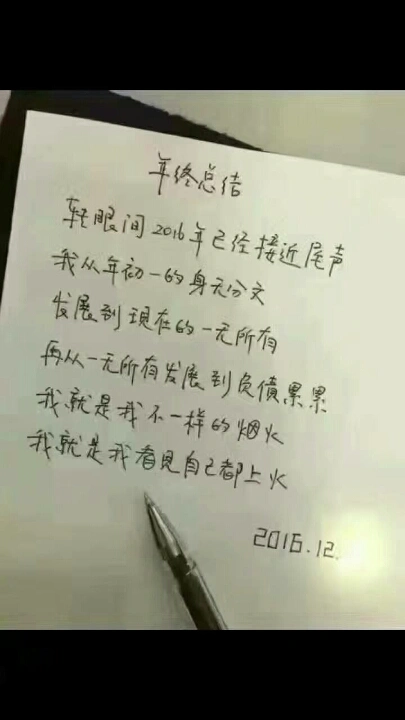 年终总结
转眼间2016年已经接近尾声
我从年初一的身无分文
发展到現在的一无所有
再从一无所有发展到负債累累
我就是我不一样的烟火
我就是我看见自己都上火
2016.12.